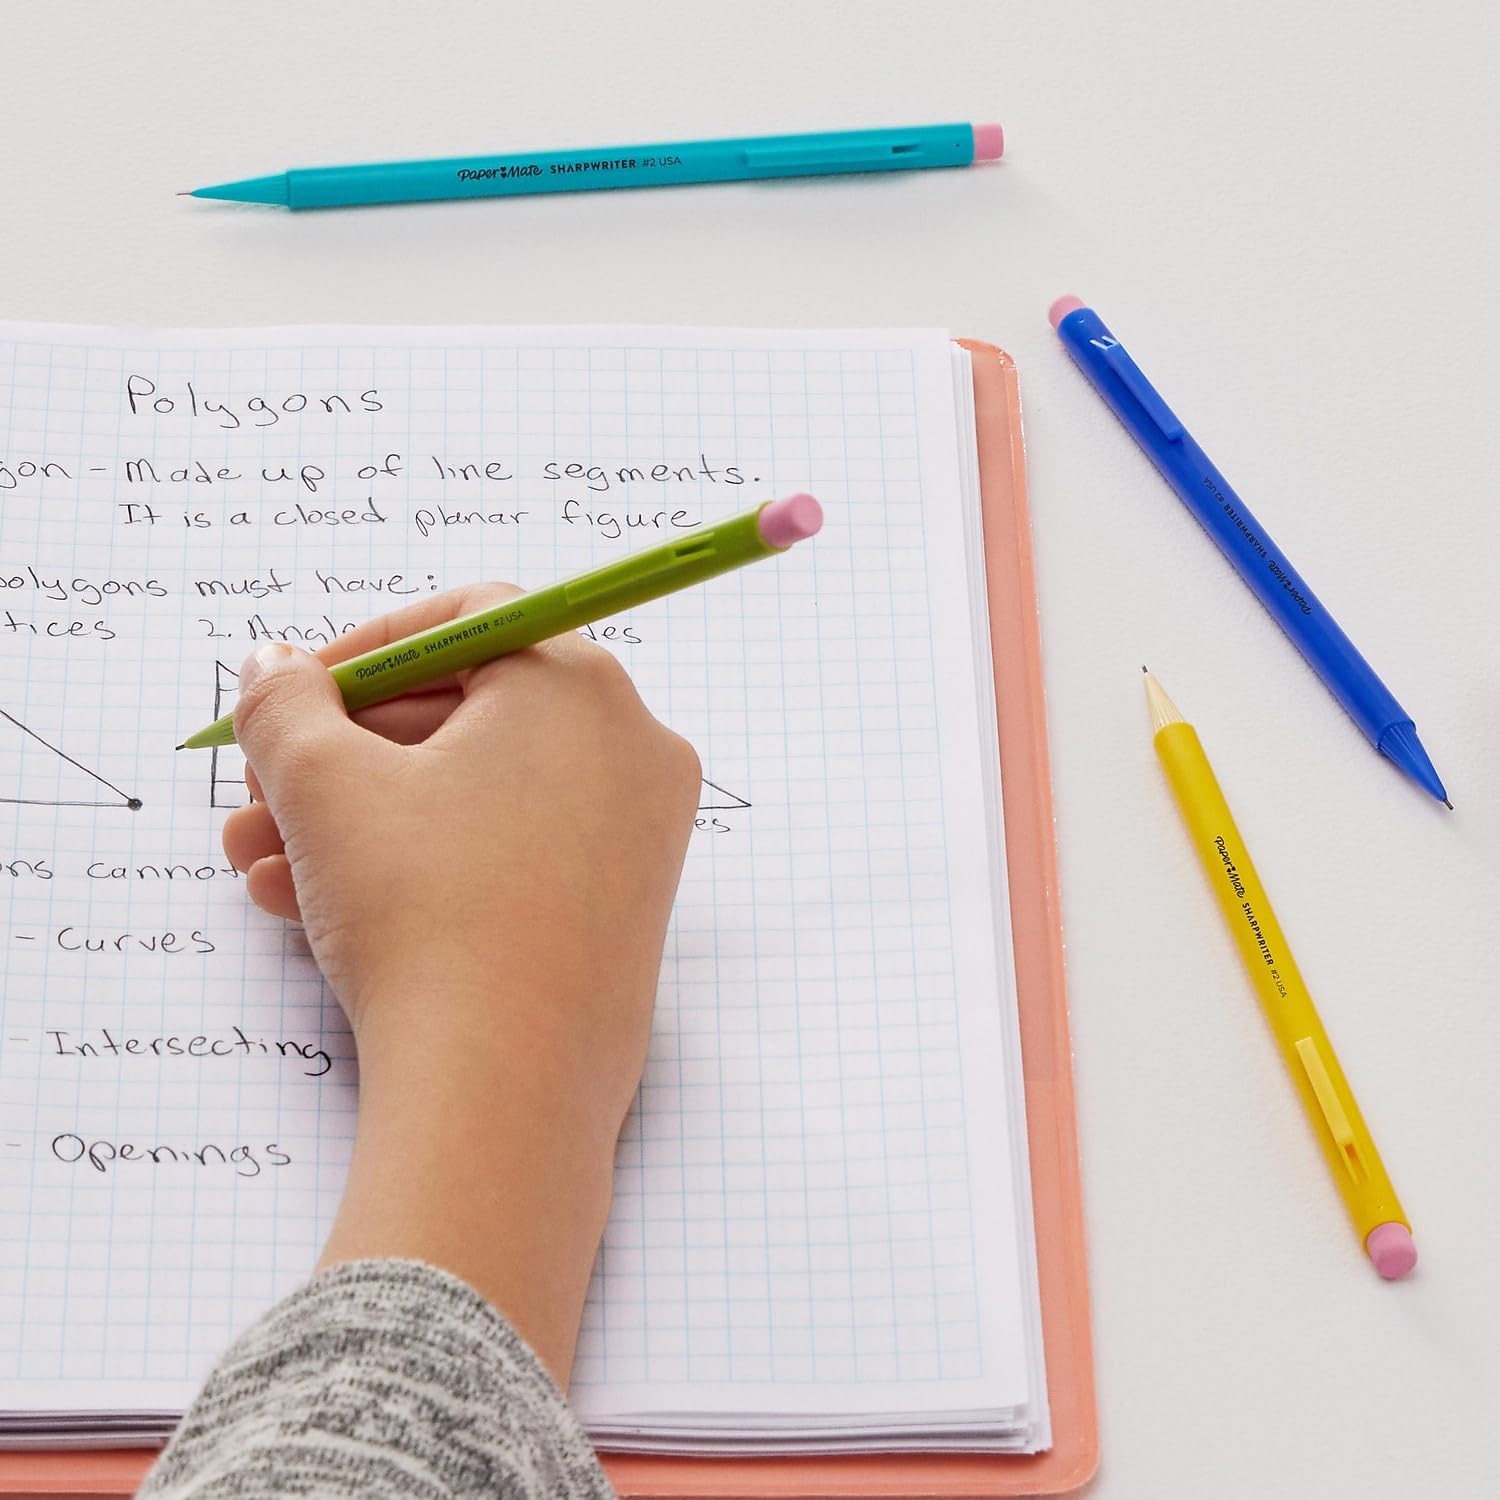 Paper Mate SHARPWRITER #2 USA
Polygons
gon - Made up of line segments.
It is a closed planar figure
polygons must have:
tices 2. Angle des
es
ons cannot
- Curves
- Intersecting
- Openings
Paper Mate SHARPWRITER #2 USA
Paper Mate SHARPWRITER #2 USA
Paper Mate SHARPWRITER #2 USA